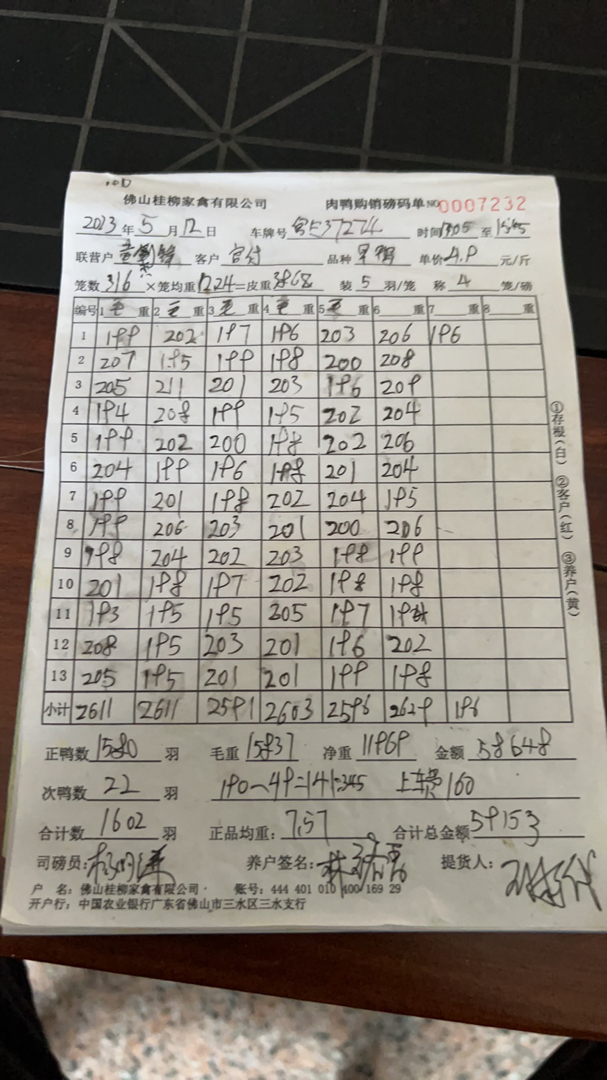 佛山桂柳家禽有限公司 肉鸭购销磅码单 NO 0007232
2023年5月12日 车牌号 粤E37274 时间1305至1545
联营户 客户 品种 单价4.9元/斤
笼数316×笼均重12.24=皮重3868 装5羽/笼 称4笼/磅
编号 1毛重 2毛重 3毛重 4毛重 5毛重 6重 7重 8重
1 199 202 197 196 203 206 196
2 207 195 199 198 200 208
3 205 211 201 203 196 209
4 194 208 199 195 202 204
5 199 202 200 198 202 206
6 204 199 196 198 201 204
7 199 201 198 202 204 195
8 199 206 203 201 200 206
9 198 204 202 203 198 199
10 201 198 197 202 198 198
11 193 195 195 205 197
12 208 195 203 201 196 202
13 205 195 201 201 199 198
小计 2611 2611 2591 2603 2596 2629 196
正鸭数1580羽 毛重15837 净重11969 金额58648
次鸭数22羽 190-49=141=345 上车费160
合计数1602羽 正品均重:7.57 合计总金额59153
司磅员: 养户签名: 提货人:
户 名:佛山桂柳家禽有限公司 账号:444 401 010 400 169 29
开户行:中国农业银行广东省佛山市三水区三水支行
①存根(白) ②客户(红) ③养户(黄)